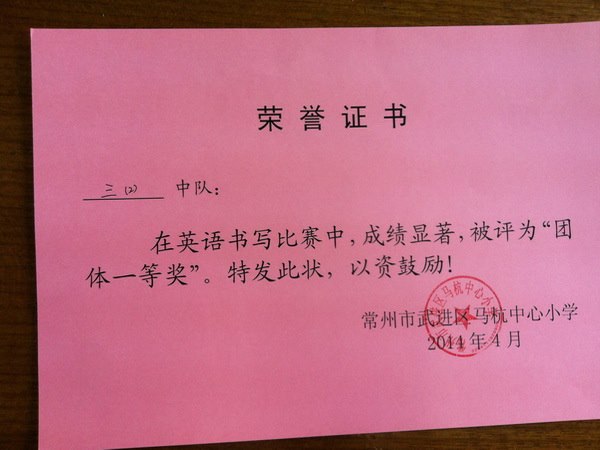 荣誉证书
三(2) 中队：
在英语书写比赛中，成绩显著，被评为“团
体一等奖”。特发此状，以资鼓励！
常州市武进区马杭中心小学
2014 年 4 月